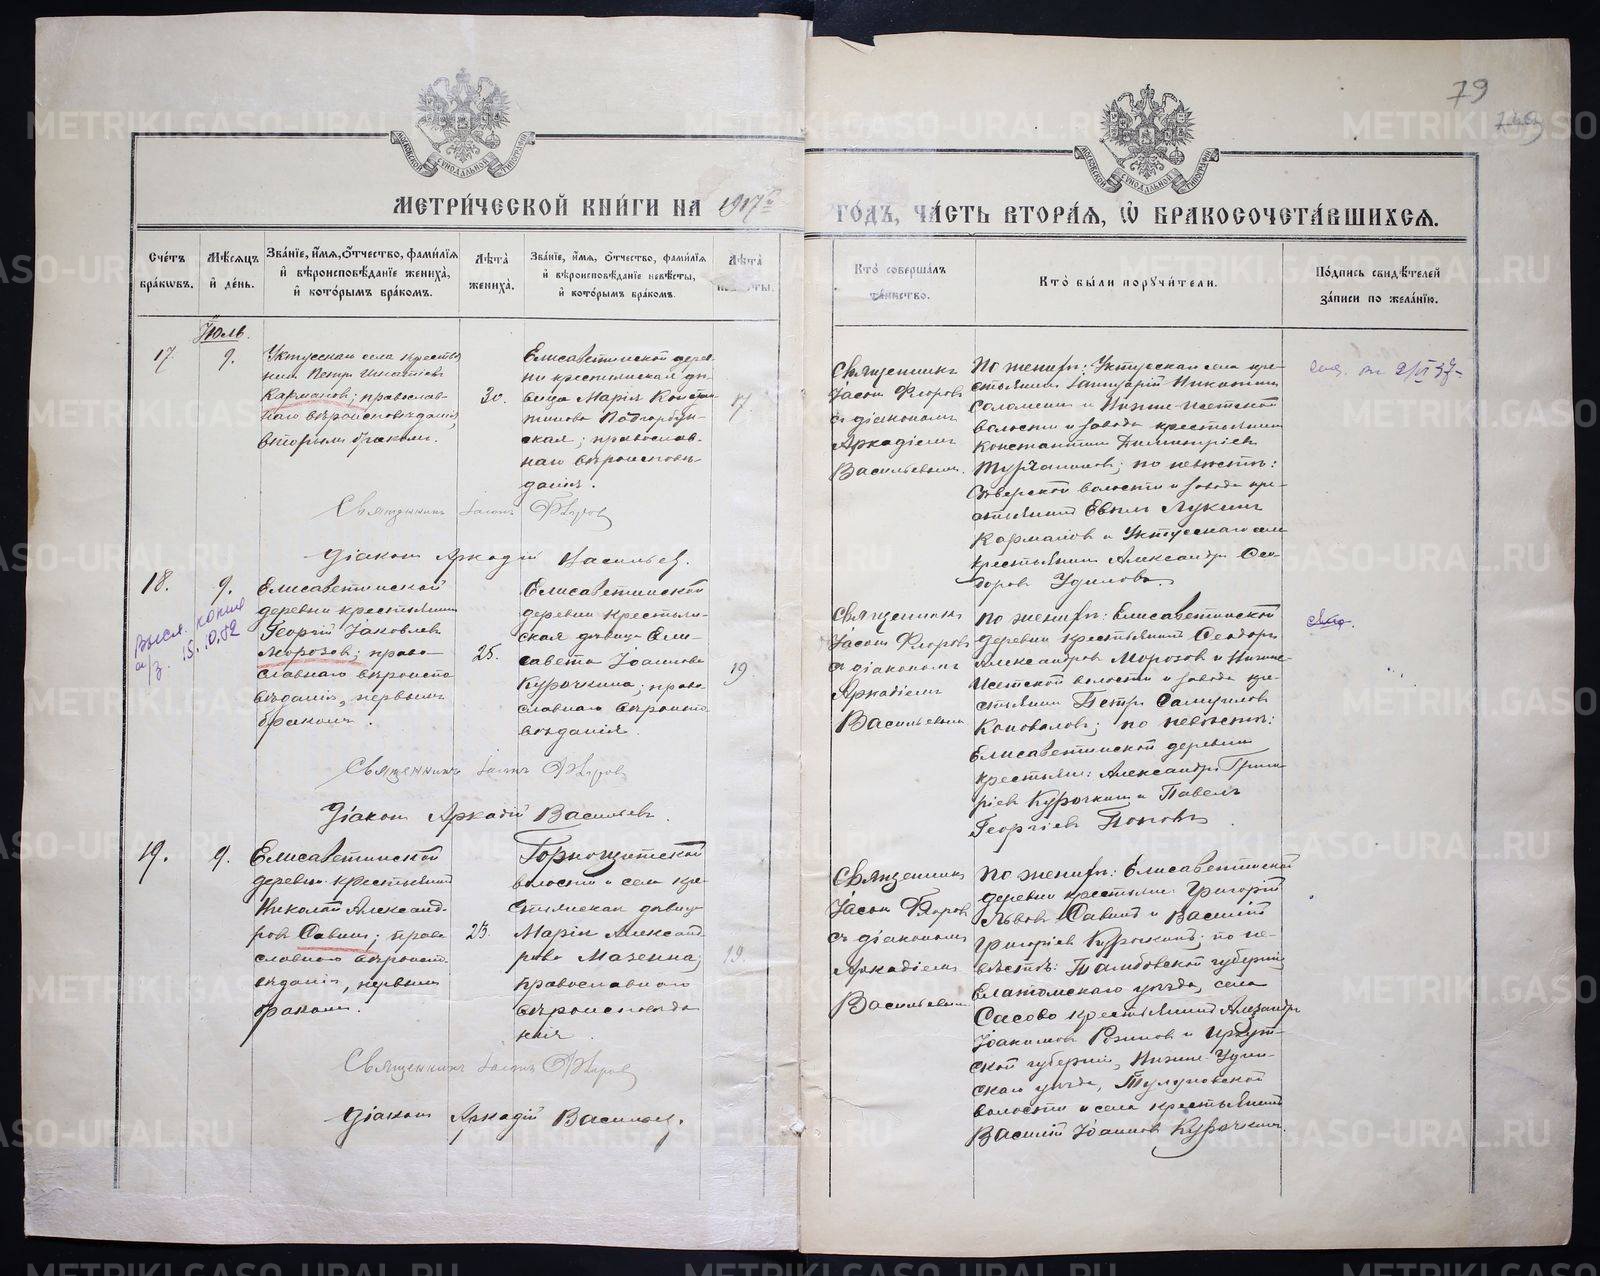 79
МЕТРИ́ЧЕСКОЙ КНИ́ГИ НА 1917й
ГО́ДЪ, ЧА́СТЬ ВТОРА́Я, Ѡ҆ БРАКОСОЧЕТА́ВШИХСЯ.
Сче́тъ бра́кѡвъ.
Мѣ́сяцъ и҆ де́нь.
Зва́нїе, и҆́мя, ѻ҆́тчество, фами́лїя
и҆ вѣроисповѣ́данїе жениха̀,
и҆ кото́рымъ бра́комъ.
Лѣ́та жениха̀.
Зва́нїе, и҆́мя, ѻ҆́тчество, фами́лїя
и҆ вѣроисповѣ́данїе невѣ́сты,
и҆ кото́рымъ бра́комъ.
Лѣ́та невѣ́сты.
Кто̀ соверша́лъ
та́инство.
Кто̀ бы́ли порꙋчи́тели.
По́дпись свидѣ́телей
за́писи по жела́нїю.
Июль.
17.
9.
Уктусскаго села крестья
нинъ Петръ Игнатіев
Кармановъ; православ-
наго вѣроисповѣданія,
вторымъ бракомъ.
30.
Елисаветинской дерев
ни крестьянская дѣ-
вица Марія Констан
тинова Подгорбун-
ская; православ-
наго вѣроисповѣ-
данія.
17
Священникъ
Іасон Флоровъ
съ діакономъ
Аркадіемъ
Васильевымъ.
По женихѣ: Уктусскаго села кре-
стьянинъ Никитинъ
Соломеинъ и Нижне-Исетской
волости и завода крестьянинъ
Константинъ Димитріевъ
Турчаниновъ; по невѣстѣ:
волости и завода кре-
стьянинъ Лукинъ
Кармановъ и Уктусскаго села
крестьянинъ Александръ Ѳео-
доровъ Удиловъ.
Священникъ Іасонъ Флоровъ
Діаконъ Аркадій Васильевъ.
18.
9.
Высл. копия
15.10.82
Елисаветинской
деревни крестьянинъ
Георгій Іаковлевъ
Морозовъ; право
славнаго вѣроиспо
вѣданія, первымъ
бракомъ.
25.
Елисаветинской
деревни крестьян-
ская дѣвица Ели-
савета Іоаннова
Курочкина; право-
славнаго вѣроиспо
вѣданія.
19
Священникъ
Іасон Флоровъ
съ діакономъ
Аркадіемъ
Васильевымъ
по женихѣ: Елисаветинской
деревни крестьянинъ Ѳеодоръ
Александровъ Морозовъ и Нижне-
Исетской волости и завода кре-
стьянинъ Петръ Самуиловъ
Коноваловъ; по невѣстѣ:
Елисаветинской деревни
крестьяне: Александръ Григо
ріевъ Курочкинъ и Павелъ
Георгіевъ Поповъ.
Священникъ Іасонъ Флоровъ
Діаконъ Аркадій Васильевъ.
19.
9.
Елисаветинской
деревни крестьянинъ
Николай Александ-
ровъ Савинъ; право
славнаго вѣроиспо-
вѣданія, первымъ
бракомъ.
23.
Горнощитской
волости и села кре-
стьянская дѣвица
Марія Александ
рова Мазеина;
православнаго
вѣроисповѣда
нія.
19.
Священникъ
Іасон Флоровъ
съ діакономъ
Аркадіемъ
Васильевымъ
По женихѣ: Елисаветинской
деревни крестьяне Григорій
Львовъ Савинъ и Василій
Григоріевъ Курочкинъ; по не-
вѣстѣ: Тамбовской губерніи,
Елатомскаго уѣзда, села
Сасово крестьянинъ Александръ
Іоакимовъ Розинъ и Иркут-
ской губерніи, Нижне-Удин-
скаго уѣзда, Тулуновской
волости и села крестьянинъ
Василій Іоанновъ Курочкинъ.
Священникъ Іасонъ Флоровъ
Діаконъ Аркадій Васильевъ.